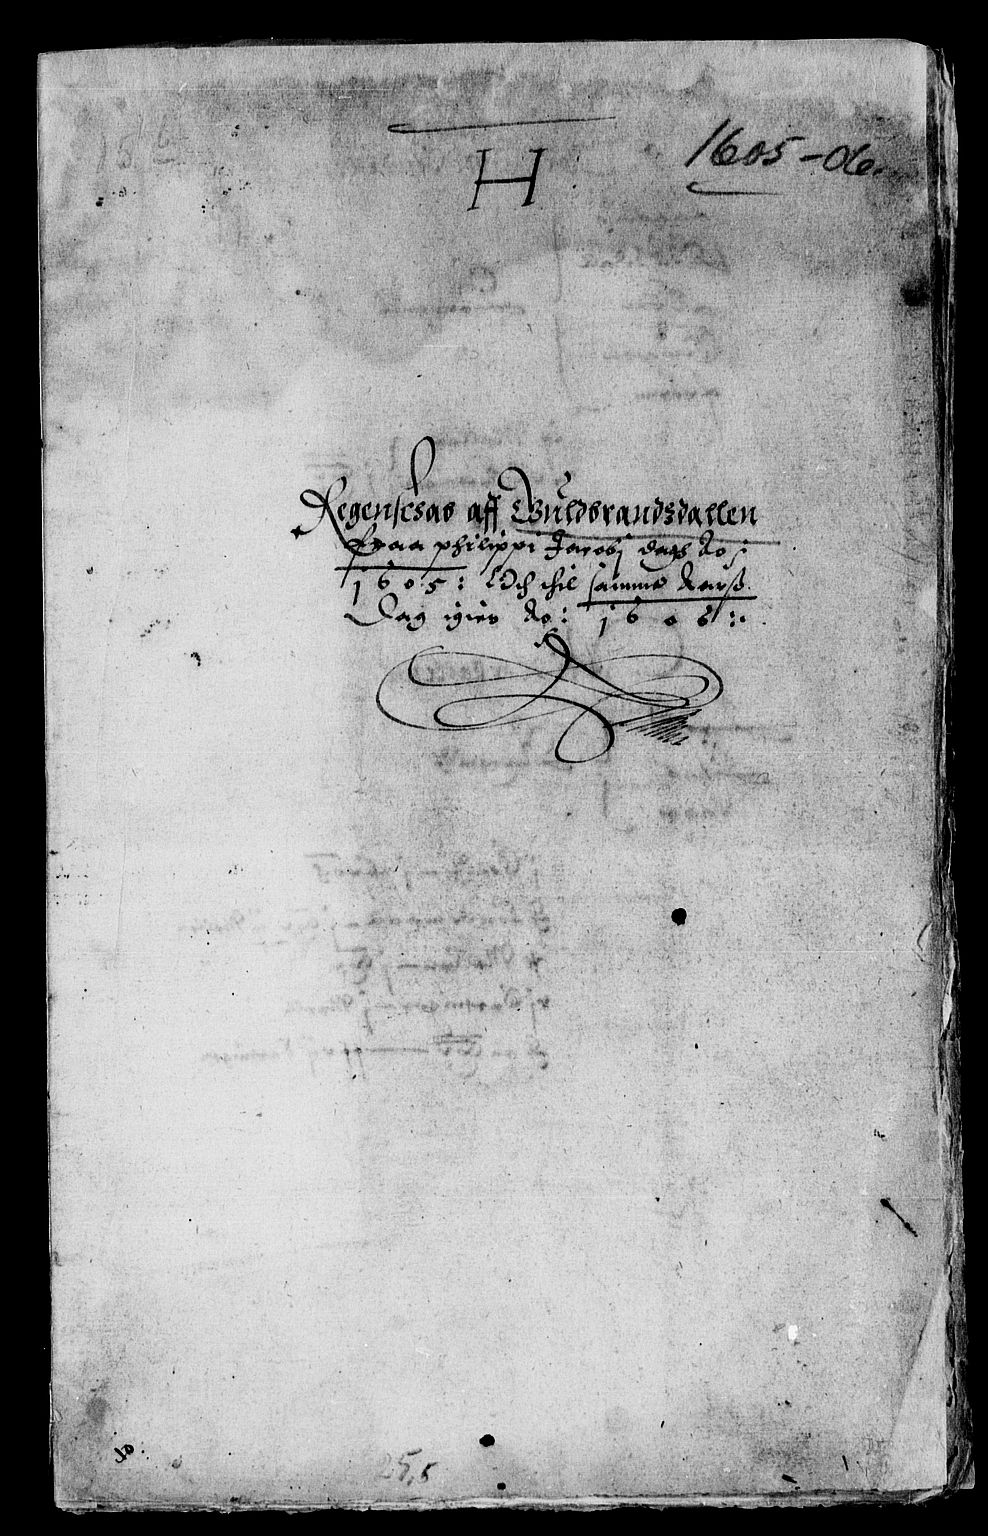 H
1605-06.
Regenscab aff Guldbrandsdallen
Fraa philippi Jacobj dagh Ao:
1605: Och thil samme Aarß
Dag igien Ao: 1606:
25,5